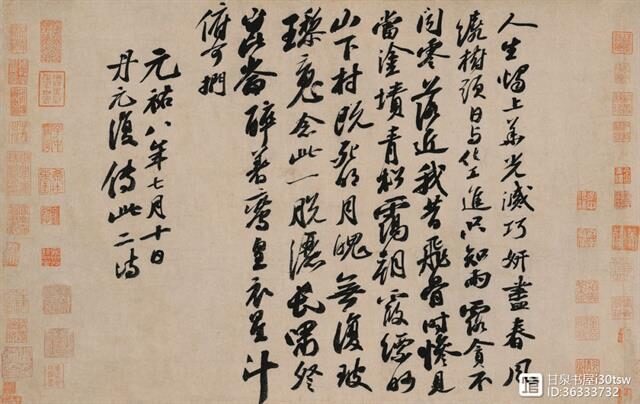 人生燭上華光滅巧妍盡春風
繞樹頭日與化工進只知雨露貪不
聞零落近我昔飛骨時慘見
當塗墳青松靄朝霞縹緲
山下村既死明月魄無復玻
瓈魂念此一脫灑長嘯登
崑崙醉著鸞皇衣星斗
俯可捫
元祐八年七月十日
丹元復傳此二詩
甘泉书屋i30tsw
ID:36333732